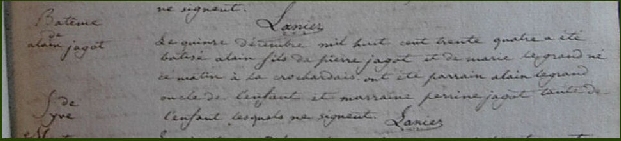 ne signent.
Lanier
Batême
de
alain jagot
Le quinze décembre mil huit cent trente quatre a été
batisé alain fils de pierre jagot et de marie legrand né
ce matin à la crochardais ont été parrain alain legrand
oncle de l'enfant et marraine perrine jagot tante de
l'enfant lesquels ne signent. Lanier
S. de
Syve